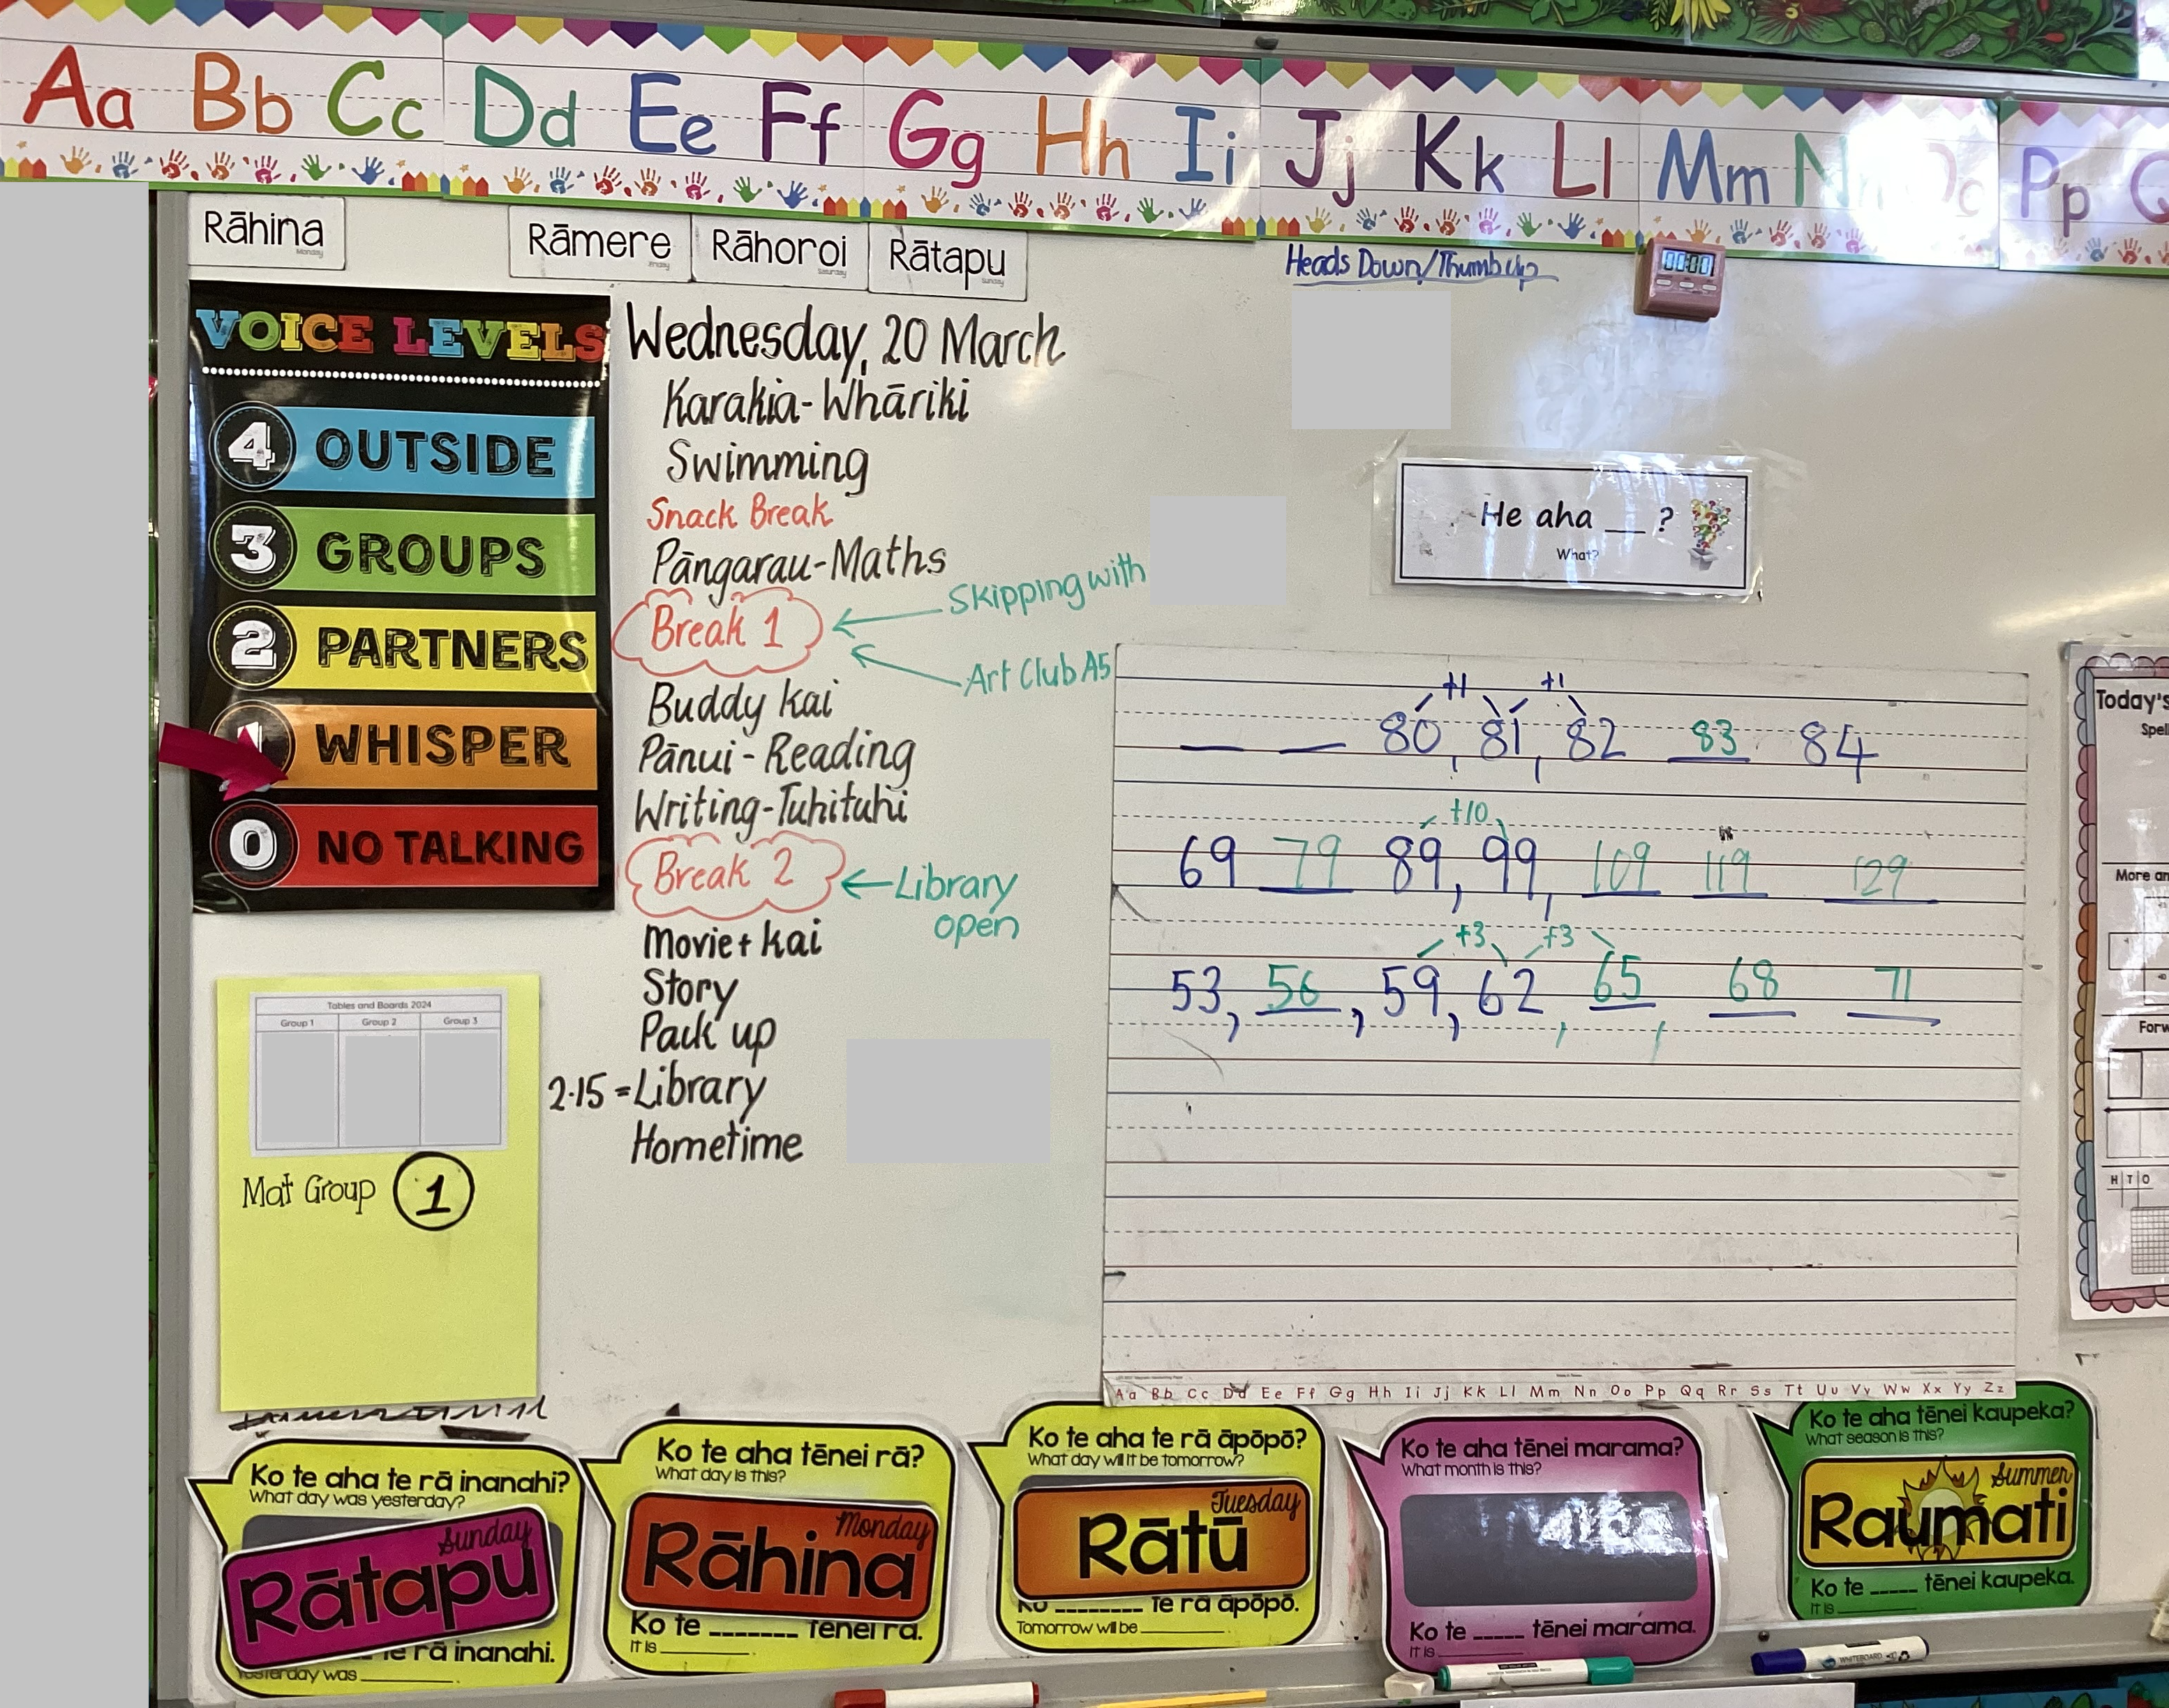 Aa Bb Cc Dd Ee Ff Gg Hh Ii Jj Kk Ll Mm Nn Pp
Rāhina
Monday
Rāmere
Friday
Rāhoroi
Saturday
Rātapu
Sunday
Heads Down/Thumbs Up
00:00
VOICE LEVELS
4 OUTSIDE
3 GROUPS
2 PARTNERS
1 WHISPER
0 NO TALKING
Wednesday, 20 March
Karakia-Whāriki
Swimming
Snack Break
Pāngarau-Maths
Break 1
Skipping with
Art Club A5
Buddy kai
Pānui - Reading
Writing-Tuhituhi
Break 2
Library
open
Movie + kai
Story
Pack up
2.15 = Library
Hometime
He aha ___ ?
What?
+1 +1
__ __ 80, 81, 82 83 84
+10
69 79 89, 99, 109 119 129
+3 +3
53, 56, 59, 62, 65, 68 71
Aa Bb Cc Dd Ee Ff Gg Hh Ii Jj Kk Ll Mm Nn Oo Pp Qq Rr Ss Tt Uu Vv Ww Xx Yy Zz
Today's
Spell
More an
Forw
H T O
Tables and Boards 2024
Group 1 Group 2 Group 3
Mat Group 1
Ko te aha te rā inanahi?
What day was yesterday?
Sunday
Rātapu
te rā inanahi.
Yesterday was ________.
Ko te aha tēnei rā?
What day is this?
Monday
Rāhina
Ko te _______ tēnei rā.
It is ________.
Ko te aha te rā āpōpō?
What day will it be tomorrow?
Tuesday
Rātū
Ko _______ te rā āpōpō.
Tomorrow will be ________.
Ko te aha tēnei marama?
What month is this?
Ko te _____ tēnei marama.
It is ________.
Ko te aha tēnei kaupeka?
What season is this?
Summer
Raumati
Ko te _____ tēnei kaupeka.
It is ________.
WHITEBOARD